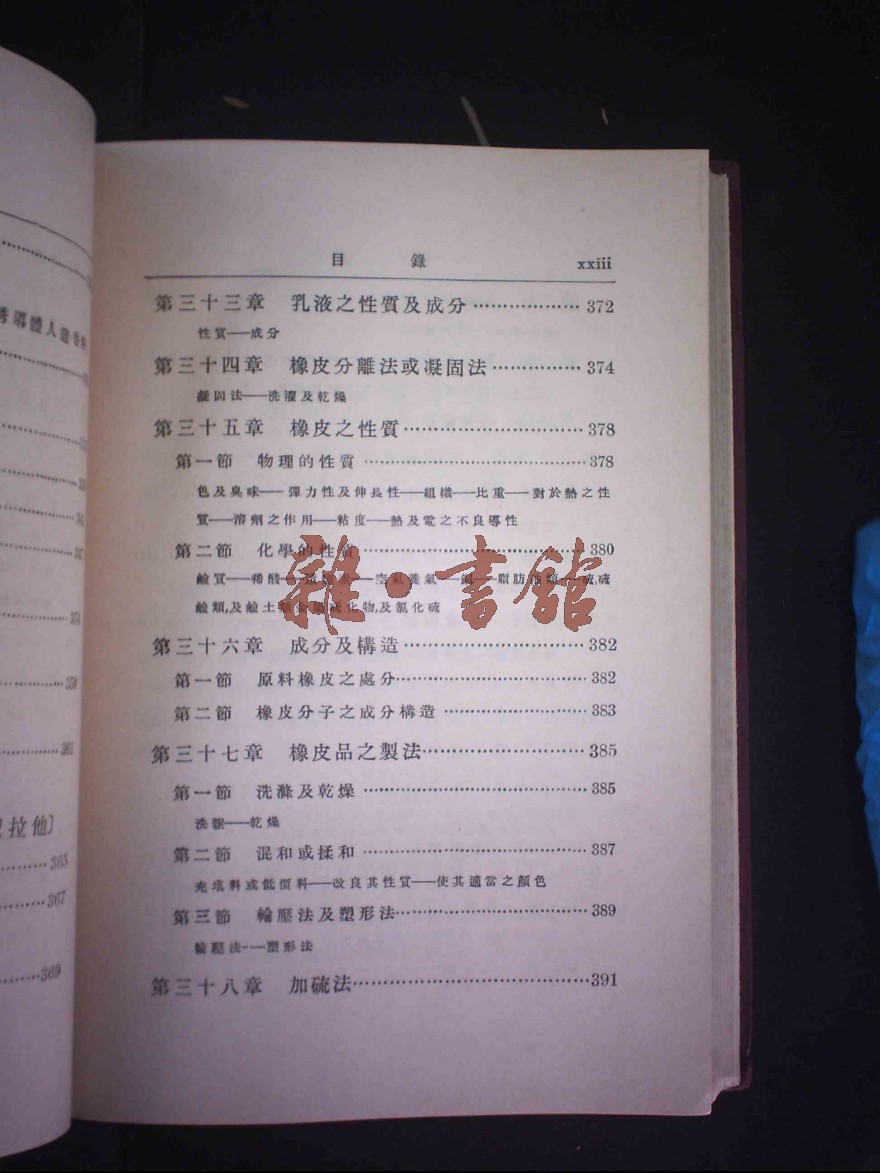 誘導體人造香料
拉他〕
365
367
369
目 錄 xxiii
第三十三章 乳液之性質及成分 ………………… 372
性質——成分
第三十四章 橡皮分離法或凝固法 …………… 374
凝固法——洗濯及乾燥
第三十五章 橡皮之性質 ………………………… 378
第一節 物理的性質 ………………………………… 378
色及臭味——彈力性及伸長性——組織——比重——對於熱之性
質——溶劑之作用——粘度——熱及電之不良導性
第二節 化學的性質 ………………………………… 380
鹼質——稀酸——空氣養氣——脂肪油類——硫,硫
鹼類,及鹼土類金屬硫化物,及氯化硫
雜·書館
第三十六章 成分及構造 ………………………… 382
第一節 原料橡皮之處分 ………………………… 382
第二節 橡皮分子之成分構造 …………………… 383
第三十七章 橡皮品之製法 ……………………… 385
第一節 洗滌及乾燥 ………………………………… 385
洗滌——乾燥
第二節 混和或揉和 ………………………………… 387
充填料或低價料——改良其性質——使其適當之顏色
第三節 輪壓法及塑形法 ………………………… 389
輪壓法——塑形法
第三十八章 加硫法 ………………………………… 391